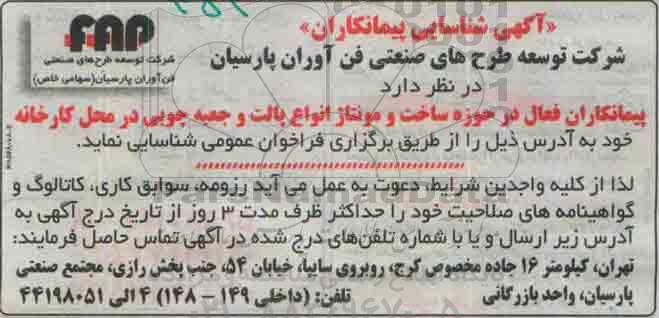 «آگهی شناسایی پیمانکاران»
FAP
شرکت توسعه طرح‌های صنعتی
فن‌آوران پارسیان(سهامی خاص)
شرکت توسعه طرح های صنعتی فن آوران پارسیان
در نظر دارد
پیمانکاران فعال در حوزه ساخت و مونتاژ انواع پالت و جعبه چوبی در محل کارخانه
خود به آدرس ذیل را از طریق برگزاری فراخوان عمومی شناسایی نماید.
لذا از کلیه واجدین شرایط، دعوت به عمل می آید رزومه، سوابق کاری، کاتالوگ و
گواهینامه های صلاحیت خود را حداکثر ظرف مدت ۳ روز از تاریخ درج آگهی به
آدرس زیر ارسال و یا با شماره تلفن‌های درج شده در آگهی تماس حاصل فرمایند:
تهران، کیلومتر ۱۶ جاده مخصوص کرج، روبروی سایپا، خیابان ۵۴، جنب پخش رازی، مجتمع صنعتی
پارسیان، واحد بازرگانی تلفن: (داخلی ۱۴۹ – ۱۴۸) ۴ الی ۴۴۱۹۸۰۵۱